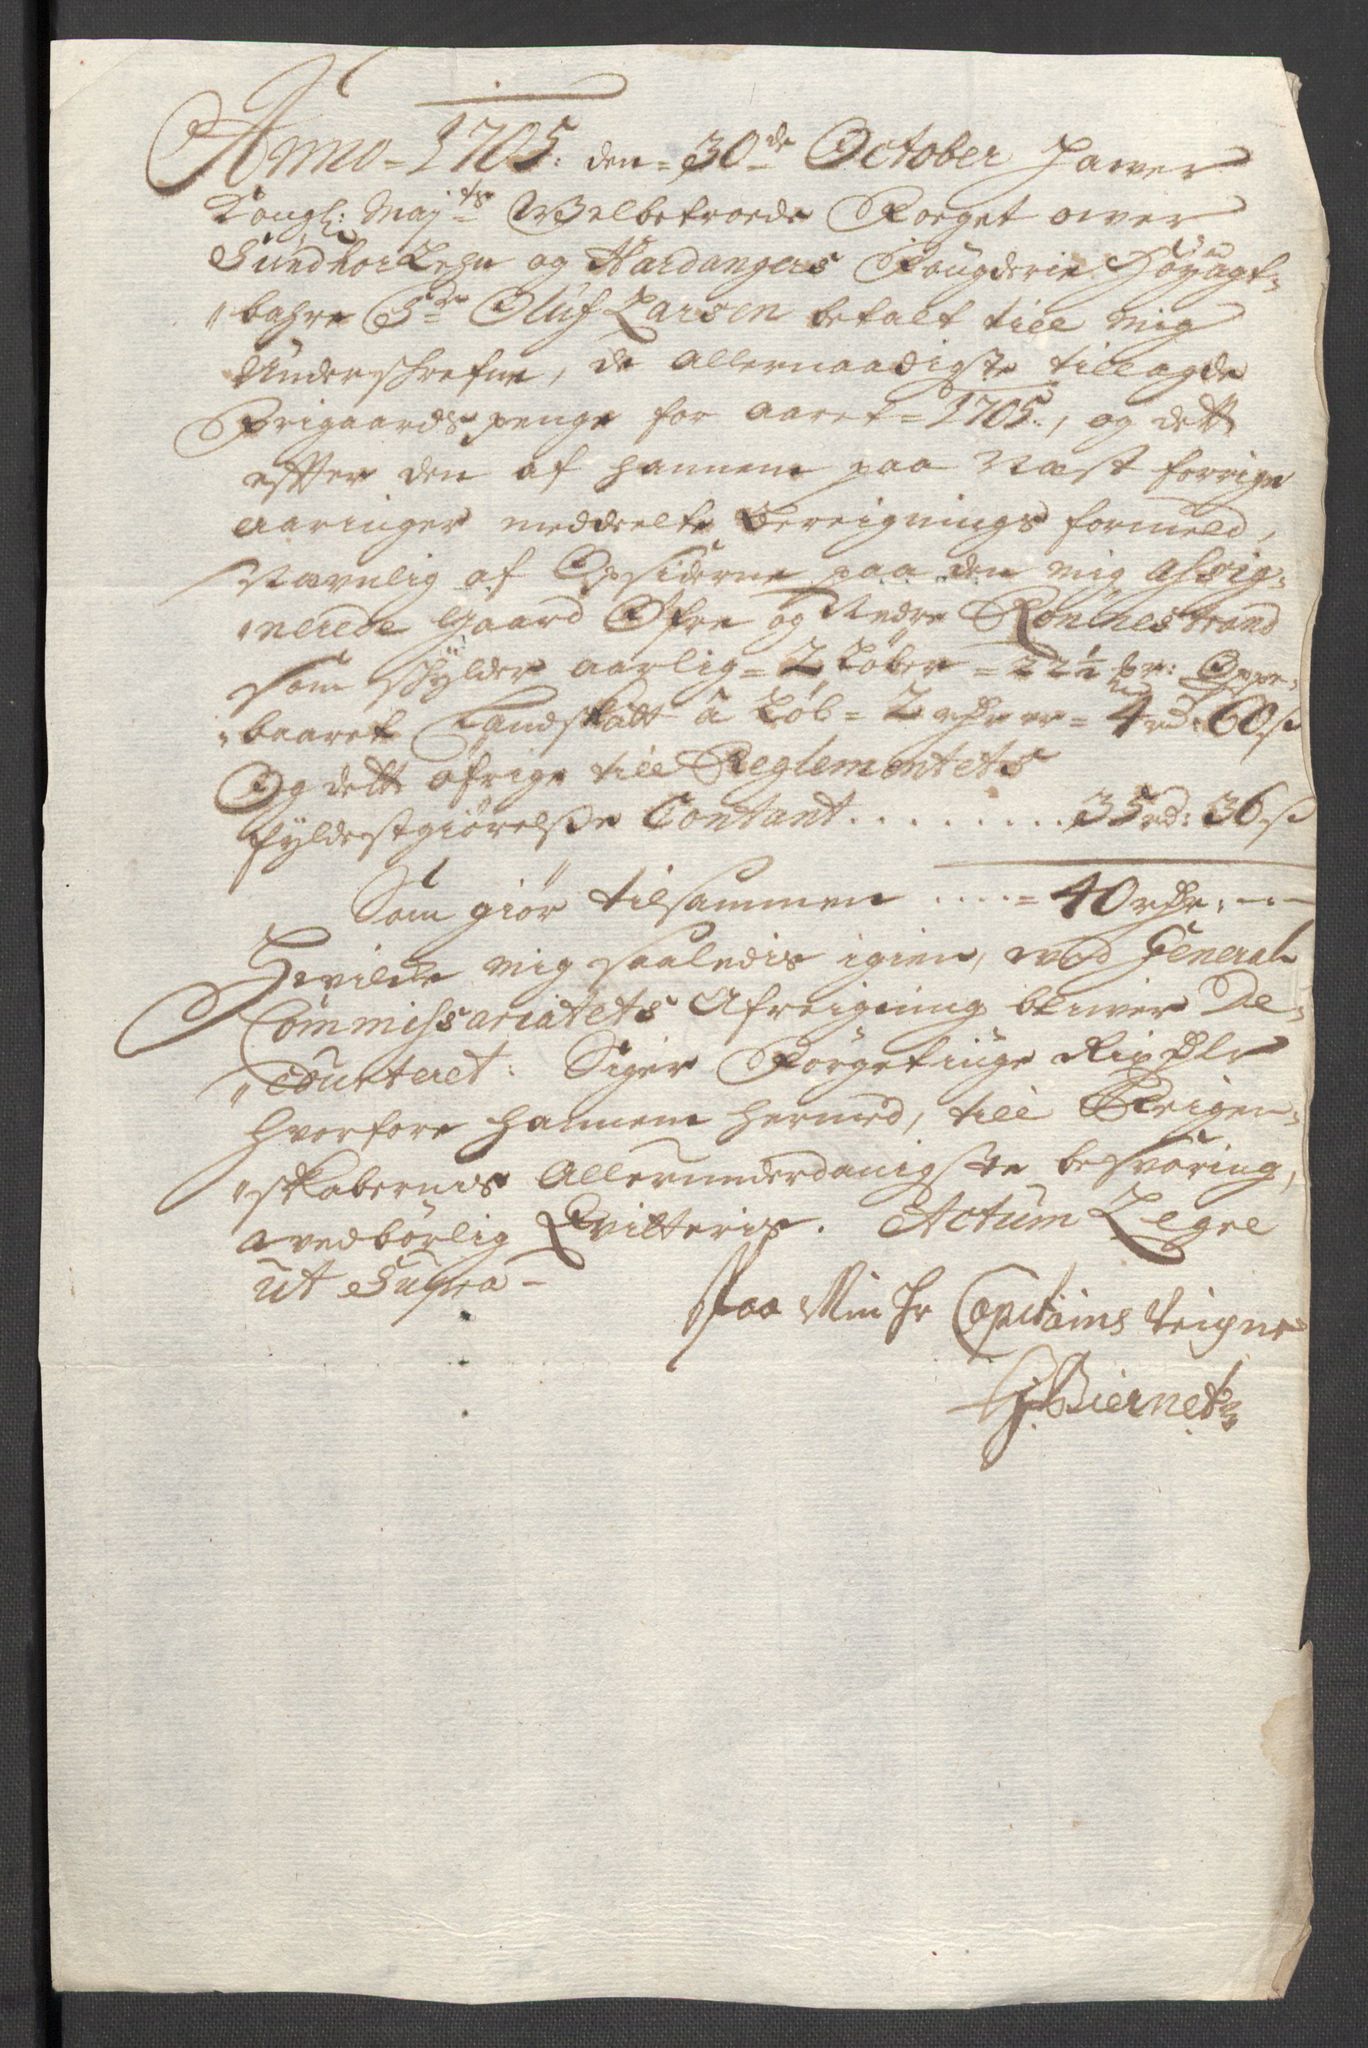 Anno 1705. den 30de October hawer
Kongl: Mayts Welbetroede Foeget ower
Sundhorlehn og Hardangers Fougderie Höyagt-
bahre Sr Oluf Larsen betalt till mig
Underschrefne, de Allernaadigste tillagde
Frigaards penge for aaret 1705., og dett
effter den af hannem paa Næst forrige
Aaringer meddeelte Bereignings formeld,
Nafnlig af Opsiderne paa den mig Assig-
nerede gaard Öfre og Nedre Rönnestrand
som schÿlder aarlig 2 Löber 22½ pr: Oppe-
baaret Landskatt â Löb 2 rdr er 4 rd: 60 s
Og dett öfrige till Reglementets
fyldestgiörelse Contant......... 35 rd: 36 s
Som giör tilsammen .... = 40 rdr: - -
Hvilcke mig saaledis igien, wed General
Commissariatets Afreigning blirer De-
courteret: Siger Förgetiuge Rixdlr
hvorfore hannem hermed, till Reigen-
skabernis Allerunderdanigste besvaring,
wedbörlig Qvitteris. Actum Legre
ut Supra -
Paa Min Hr Capitains Veigne
H: Biernets